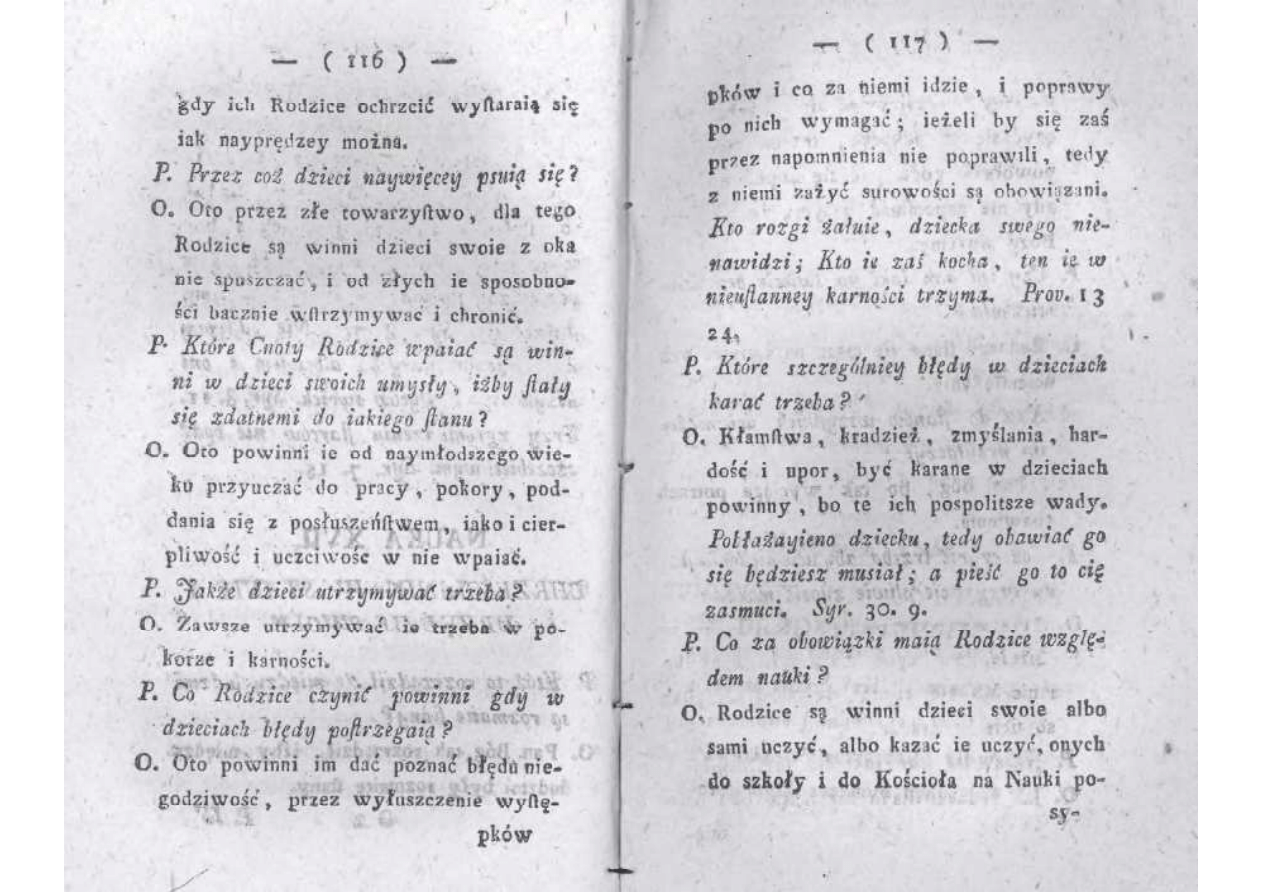 — ( 116 ) —
gdy ich Rodzice ochrzcić wyſtaraią się
iak nayprędzey można.
P. Przez coż dzieci naywięcey psuią się?
O. Oto przez złe towarzyſtwo, dla tego
Rodzice są winni dzieci swoie z oka
nie spuszczać, i od złych ie sposobno-
ści bacznie wſtrzymywać i chronić.
P. Które Cnoty Rodzice wpaiać są win-
ni w dzieci swoich umysły, iżby ſtały
się zdatnemi do iakiego ſtanu?
O. Oto powinni ie od naymłodszego wie-
ku przyuczać do pracy, pokory, pod-
dania się z posłuszeńſtwem, iako i cier-
pliwość i uczciwość w nie wpaiać.
P. Jakże dzieci utrzymywać trzeba?
O. Zawsze utrzymywać ie trzeba w po-
korze i karności.
P. Co Rodzice czynić powinni gdy w
dzieciach błędy poſtrzegaią?
O. Oto powinni im dać poznać błędu nie-
godziwość, przez wyłuszczenie wyſtę-
pków
— ( 117 ) —
pków i co za niemi idzie, i poprawy
po nich wymagać; ieżeli by się zaś
przez napomnienia nie poprawili, tedy
z niemi zażyć surowości są obowiązani.
Kto rozgi żałuie, dziecka swego nie-
nawidzi; Kto ie zaś kocha, ten ie w
nieuſtanney karności trzyma. Prov. 13
24.
P. Które szczególniey błędy w dzieciach
karać trzeba?
O. Kłamſtwa, kradzież, zmyślania, har-
dość i upor, być karane w dzieciach
powinny, bo te ich pospolitsze wady.
Pobłażayieno dziecku, tedy obawiać go
się będziesz musiał; a pieść go to cię
zasmuci. Syr. 30. 9.
P. Co za obowiązki maią Rodzice wzglę-
dem nauki?
O. Rodzice są winni dzieci swoie albo
sami uczyć, albo kazać ie uczyć, onych
do szkoły i do Kościoła na Nauki po-
sy-